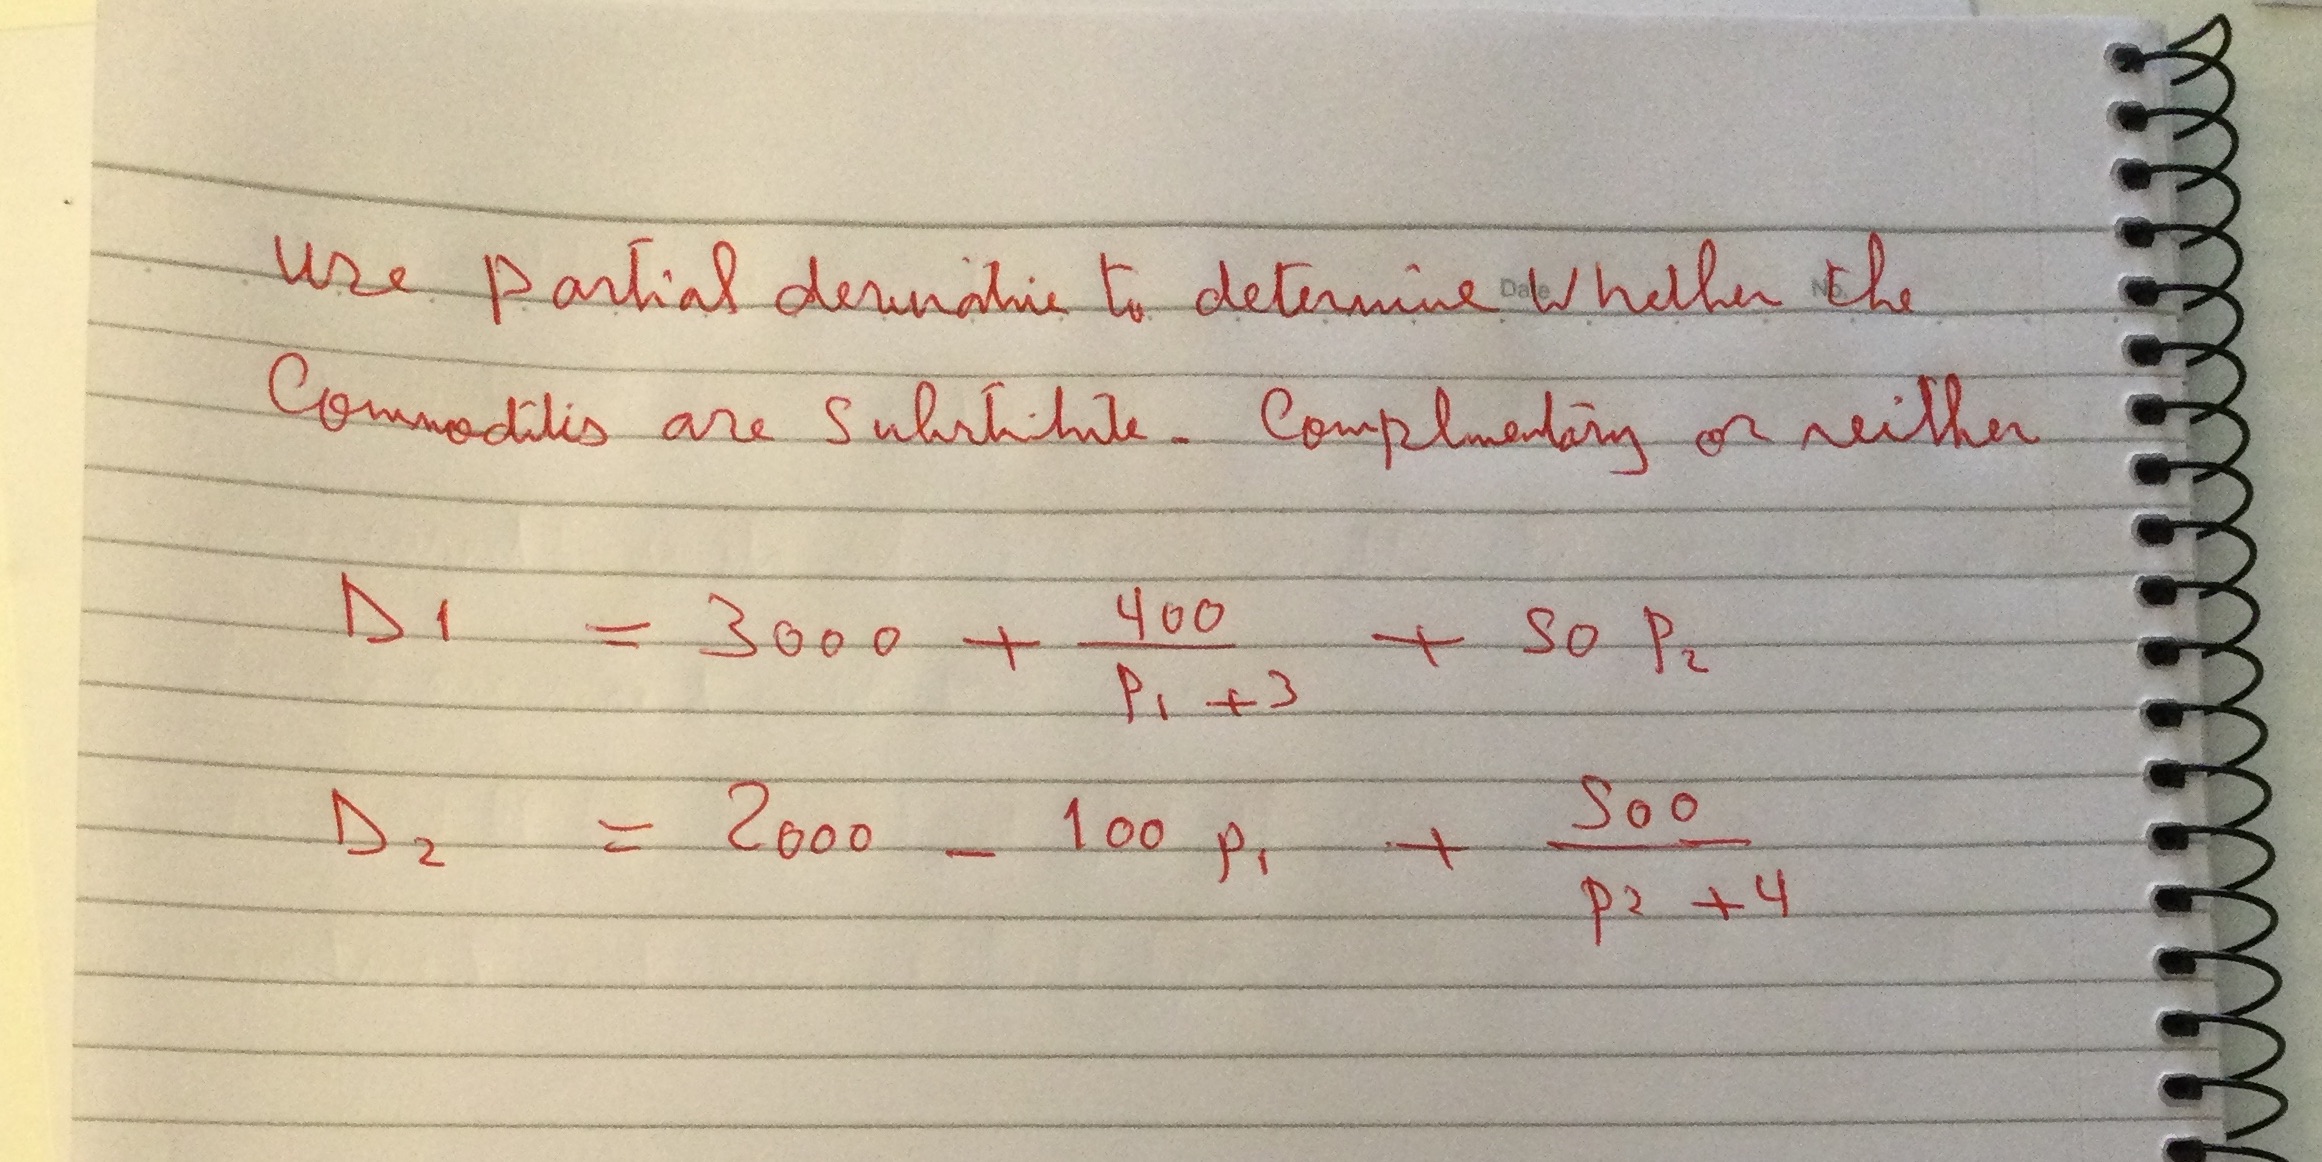 Use partial derivative to determine Whether the
Date No.
Commodities are Substitute. Complmentary or neither
D1 = 3000 + 400 / P₁ + 3 + 50 P₂
D₂ = 2000 - 100 P₁ + 500 / P2 + 4